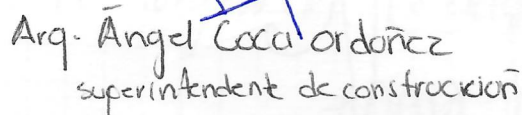 Arq. Ángel Coca ordoñez
superintendent de construccion